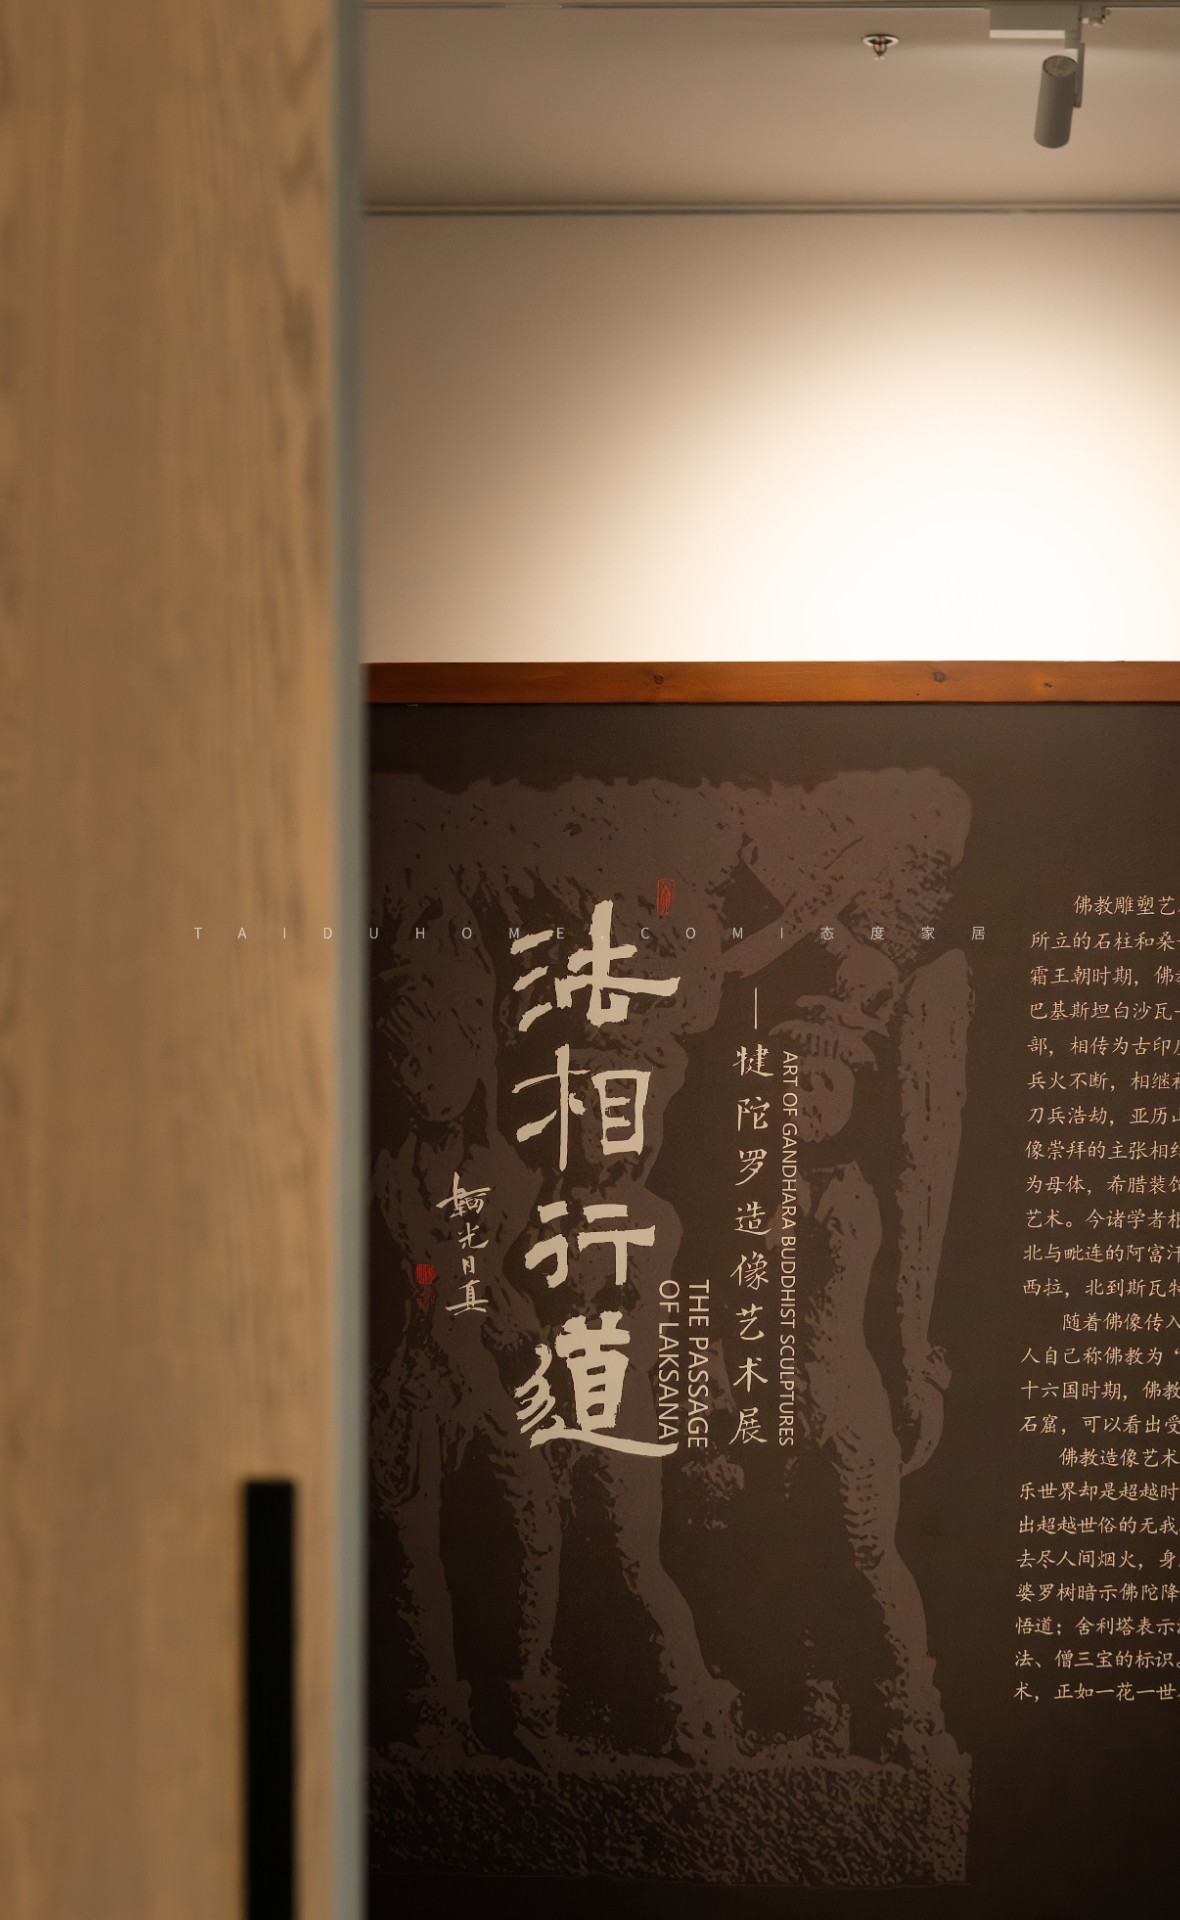 TAIDUHOME.COM|态度家居
法相行道
THE PASSAGE
OF LAKSANA
—犍陀罗造像艺术展
ART OF GANDHARA BUDDHIST SCULPTURES
佛教雕塑艺
所立的石柱和桑
霜王朝时期，佛
巴基斯坦白沙瓦
部，相传为古印
兵火不断，相继
刀兵浩劫，亚历
像崇拜的主张相
为母体，希腊装
艺术。今诸学者
北与毗连的阿富
西拉，北到斯瓦
随着佛像传入
人自己称佛教为“
十六国时期，佛教
石窟，可以看出受
佛教造像艺术
乐世界却是超越时
出超越世俗的无我
去尽人间烟火，身
婆罗树暗示佛陀降
悟道；舍利塔表示
法、僧三宝的标识。
术，正如一花一世